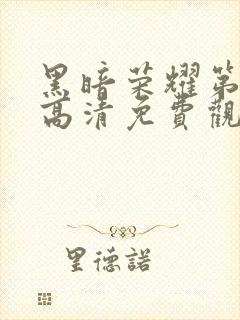 黑暗荣耀第
高清免費觀
里德諾